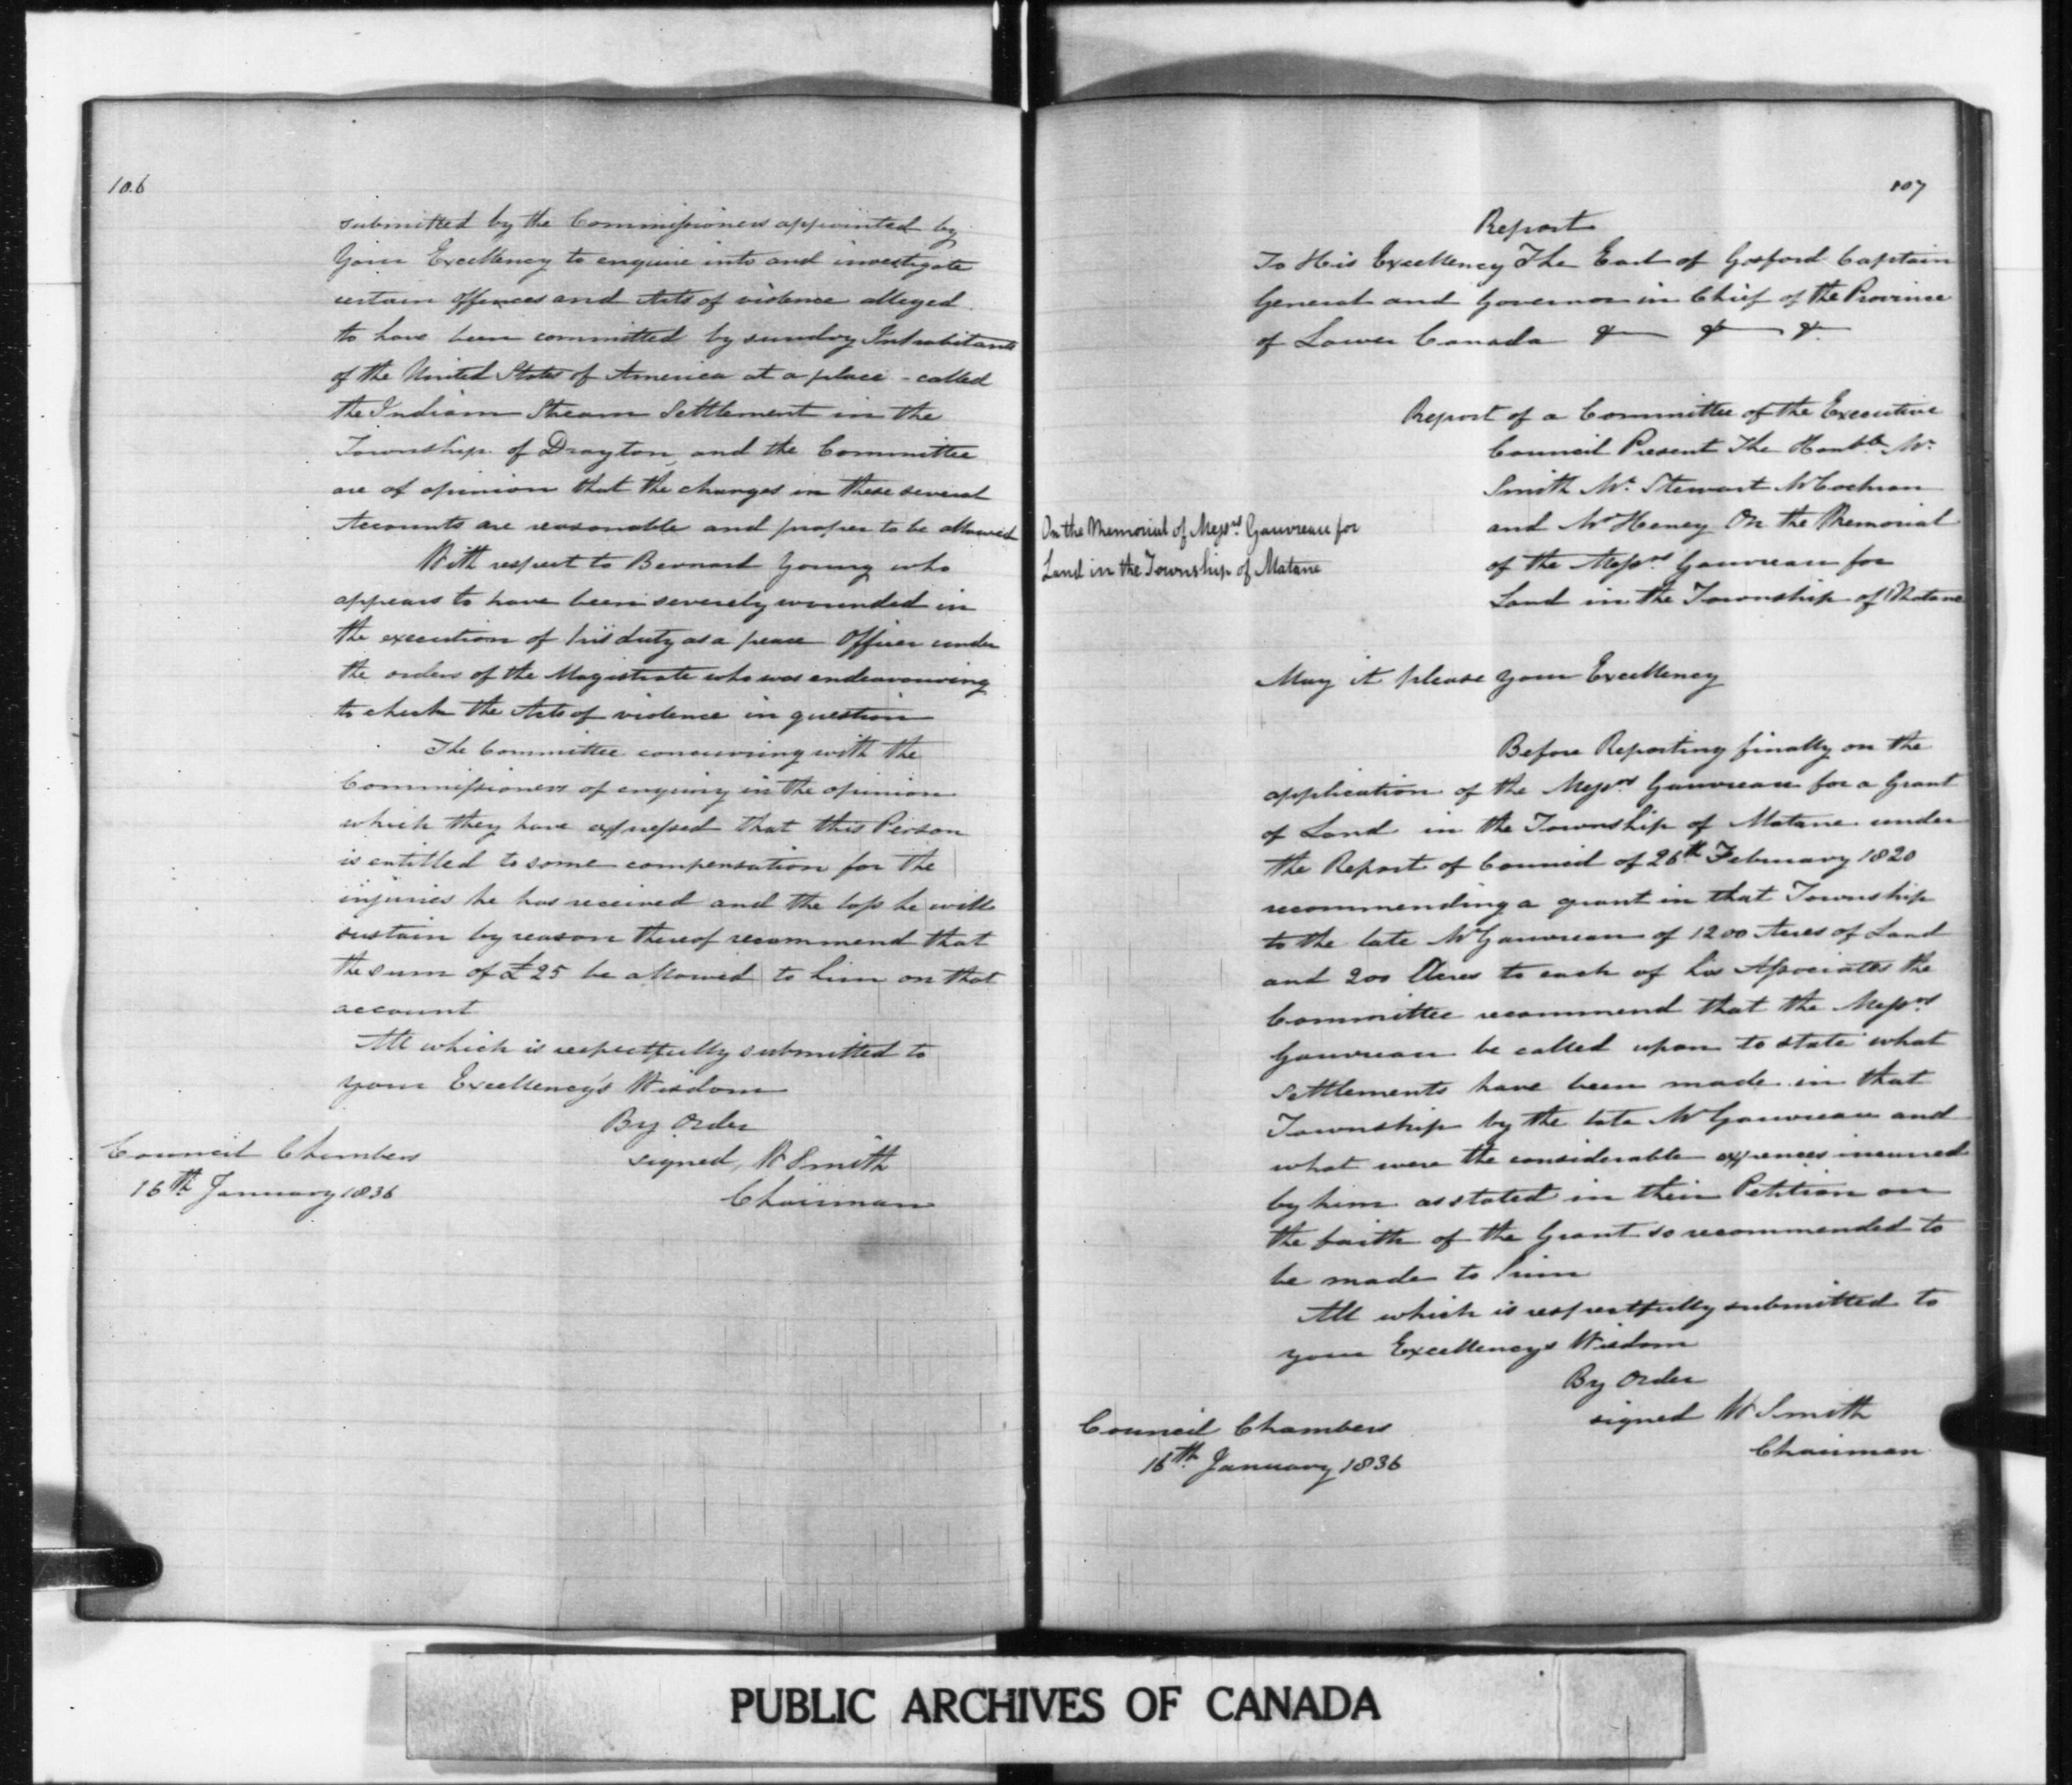 106
submitted by the Commissioners appointed by
Your Excellency to enquire into and investigate
certain offences and Acts of violence alleged
to have been committed by sundry Inhabitants
of the United States of America at a place - called
the Indian Stream Settlement in the
Township of Drayton, and the Committee
are of opinion that the charges in these several
Accounts are reasonable and proper to be allowed
With respect to Bernard Young who
appears to have been severely wounded in
the execution of his duty as a peace Officer under
the orders of the Magistrate who was endeavouring
to check the Acts of violence in question
The Committee concurring with the
Commissioners of enquiry in the opinion
which they have expressed that this Person
is entitled to some compensation for the
injuries he has received and the loss he will
sustain by reason thereof recommend that
the sum of £25 be allowed to him on that
account
All which is respectfully submitted to
your Excellency's Wisdom
By Order
signed, W Smith
Chairman
Council Chambers
16th January 1836
107
Report
To His Excellency The Earl of Gosford Captain
General and Governor in Chief of the Province
of Lower Canada & & &
Report of a Committee of the Executive
Council Present The Honble Mr
Smith Mr Stewart Mr Cochran
and Mr Heney On the Memorial
of the Messrs Gauvreau for
Land in the Township of Matane
On the Memorial of Messrs Gauvreau for
Land in the Township of Matane
May it please your Excellency
Before Reporting finally on the
application of the Messrs Gauvreau for a Grant
of Land in the Township of Matane under
the Report of Council of 26th February 1820
recommending a grant in that Township
to the late Mr Gauvreau of 1200 Acres of Land
and 200 Acres to each of his Associates the
Committee recommend that the Messrs
Gauvreau be called upon to state what
settlements have been made in that
Township by the late Mr Gauvreau and
what were the considerable expences incurred
by him as stated in their Petition on
the faith of the Grant so recommended to
be made to him
All which is respectfully submitted to
your Excellencys Wisdom
By Order
signed W Smith
Chairman
Council Chambers
16th January 1836
PUBLIC ARCHIVES OF CANADA